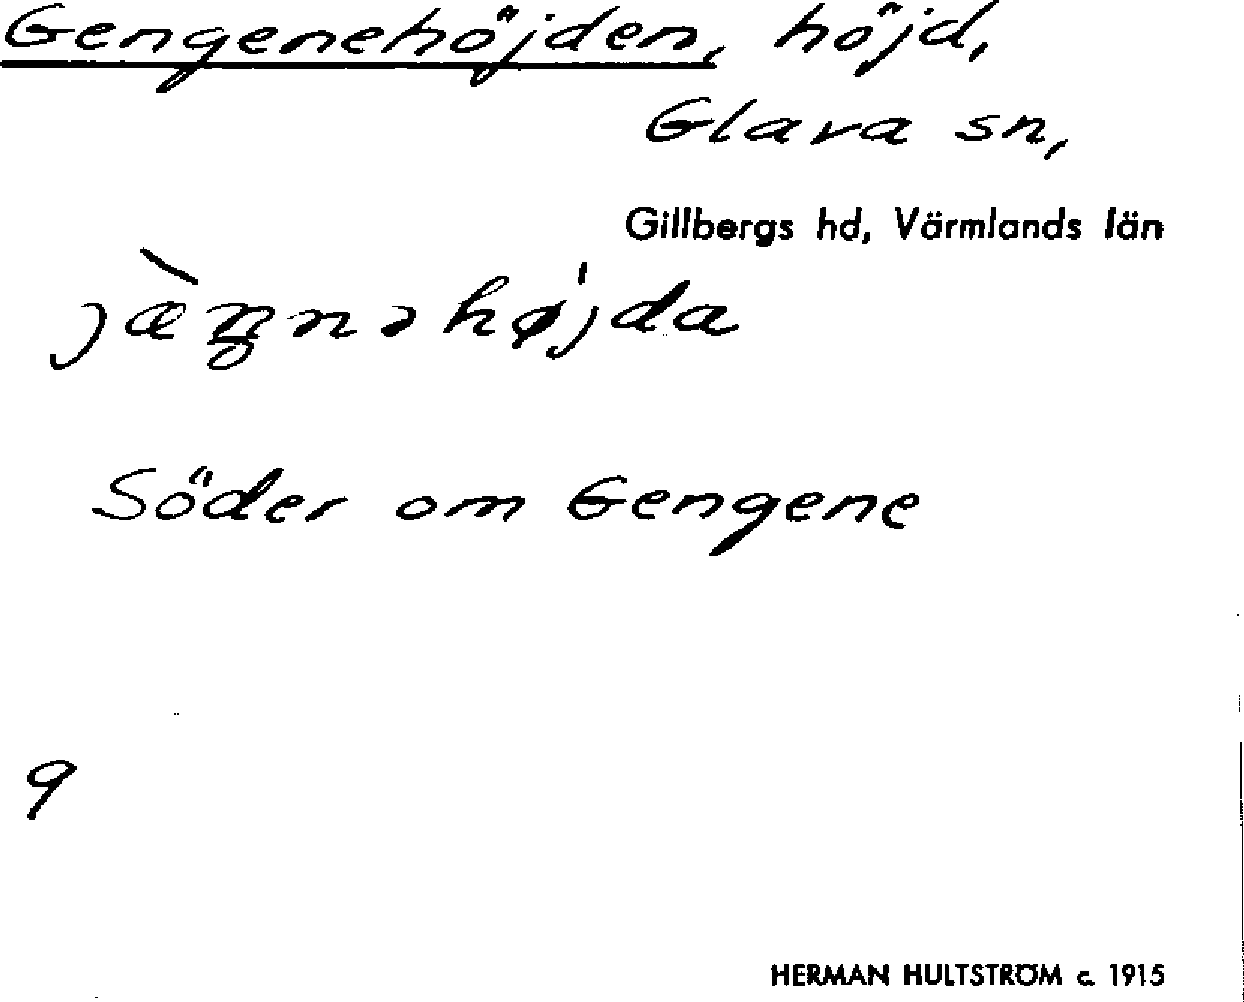 Gengenehöjden, höjd,
Glava sn,
Gillbergs hd, Värmlands län
jæ̀ŋnəhøjda
Söder om Gengene
9
HERMAN HULTSTRÖM c. 1915